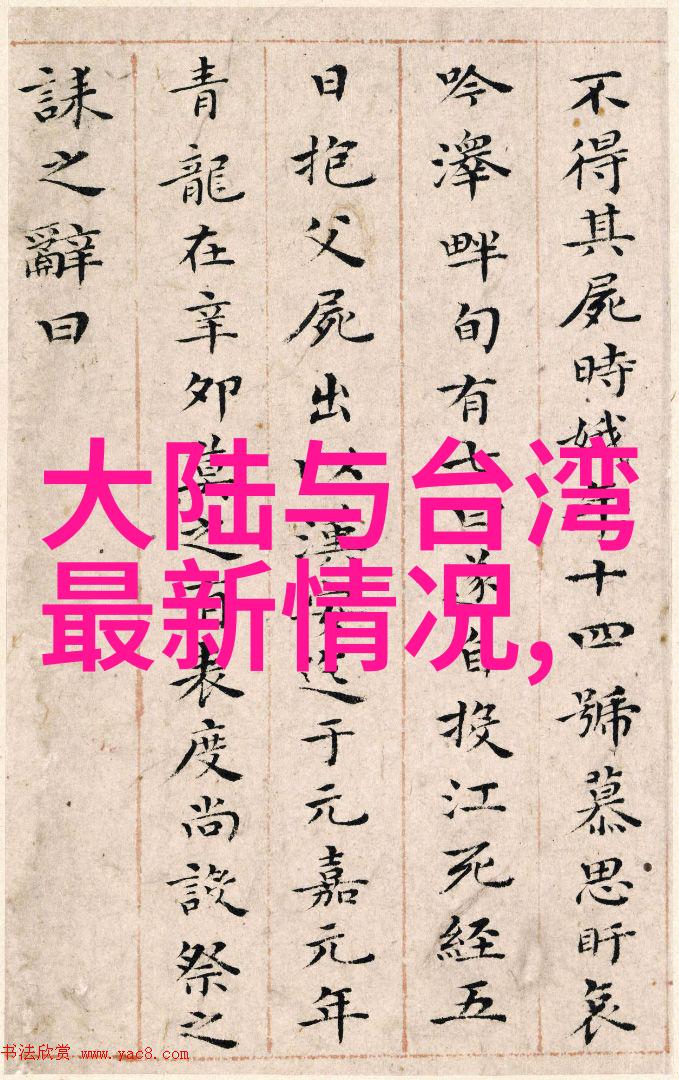 不得其屍時娥年十四號慕思盱哀
吟澤畔旬有七日遂自投江死經五
日抱父屍出以漢安迄于元嘉元年
青龍在辛卯莫之有表度尚設祭之
誄之辭曰
大陆与台湾
最新情况,
书法欣赏 www.yac8.com